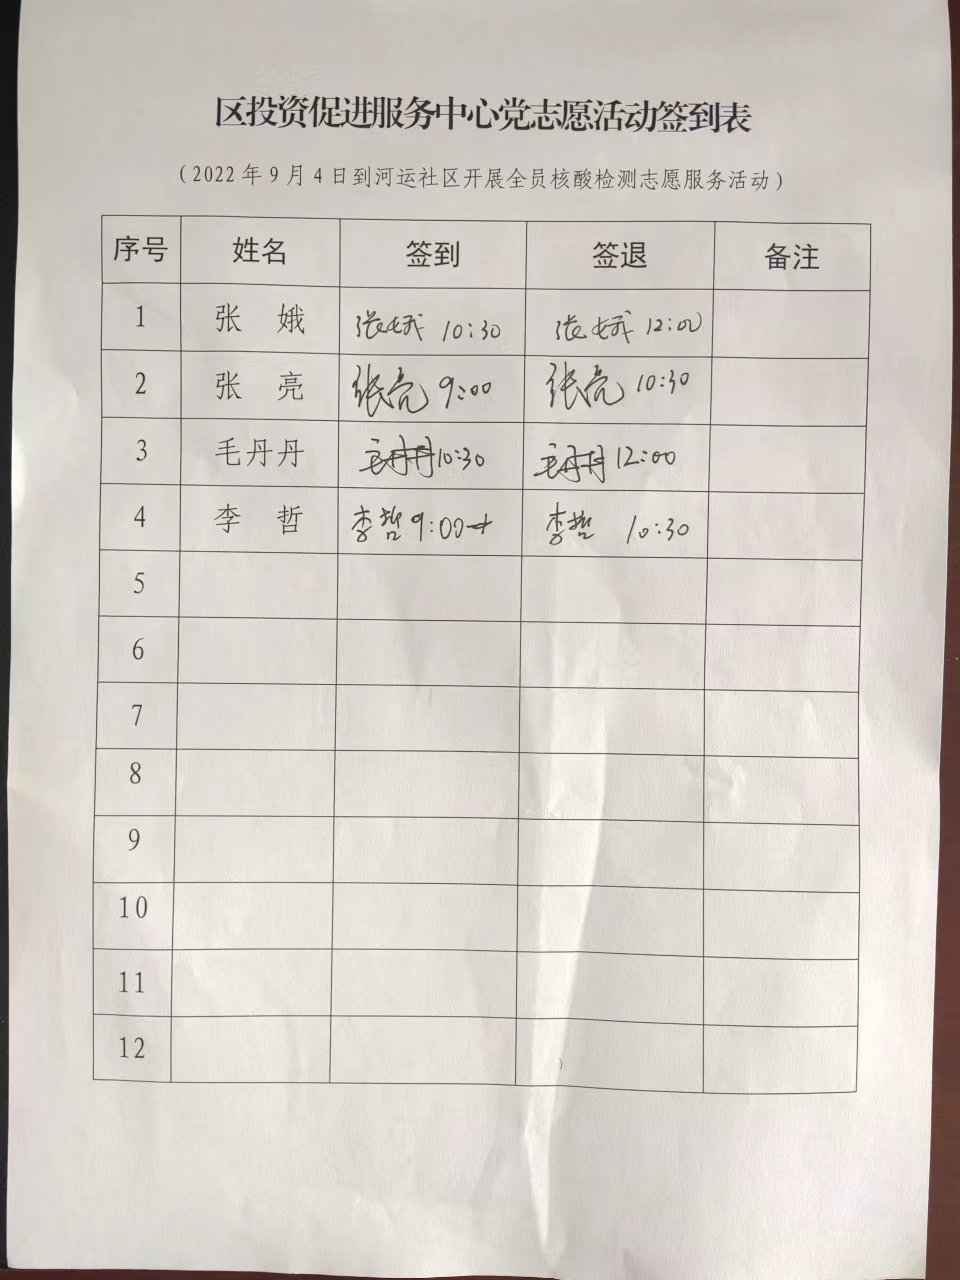 区投资促进服务中心党志愿活动签到表
（2022年9月4日到河运社区开展全员核酸检测志愿服务活动）
序号 姓名 签到 签退 备注
1 张 娥 张娥 10:30 张娥 12:00
2 张 亮 张亮 9:00 张亮 10:30
3 毛丹丹 毛丹丹 10:30 毛丹丹 12:00
4 李 哲 李哲 9:00 李哲 10:30
5
6
7
8
9
10
11
12